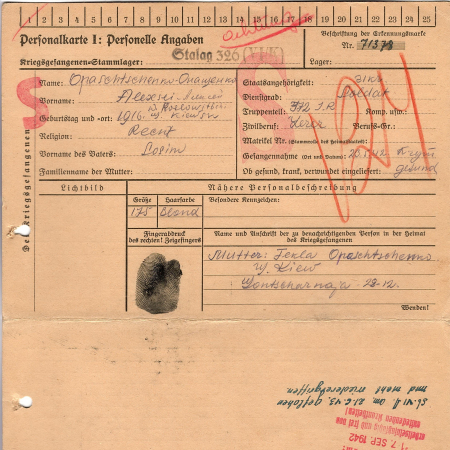 1 2 3 4 5 6 7 8 9 10 11 12 13 14 15 16 17 18 19 20 21 22 23 24 25
Personalkarte I: Personelle Angaben
Beschriftung der Erkennungsmarke
Stalag 326 (VI K)
Nr. 71373
Kriegsgefangenen-Stammlager:
Lager:
Des Kriegsgefangenen
S
Name: Opaschtschenko
Staatsangehörigkeit:
Vorname: Alexei
Dienstgrad: Soldat
Truppenteil: 772 I.R Komp. usw.:
Geburtstag und -ort: 1916 Kiew
Zivilberuf: Lerer Berufs-Gr.:
Religion:
Matrikel Nr. (Stammrolle des Heimatstaates):
Vorname des Vaters:
Gefangennahme (Ort und Datum): 42 Krym
Familienname der Mutter:
Ob gesund, krank, verwundet eingeliefert: gesund
Lichtbild
Nähere Personalbeschreibung
Größe Haarfarbe Besondere Kennzeichen:
175 Blond
Fingerabdruck
des rechten! Zeigefingers
Name und Anschrift der zu benachrichtigenden Person in der Heimat
des Kriegsgefangenen
Mutter: Fekla Opaschtschenko
Kiew
Gontscharnaja 28-12.
Wenden!
St. VI A am 21.6.43 geflohen
und nicht wiederergriffen
17. SEP. 1942